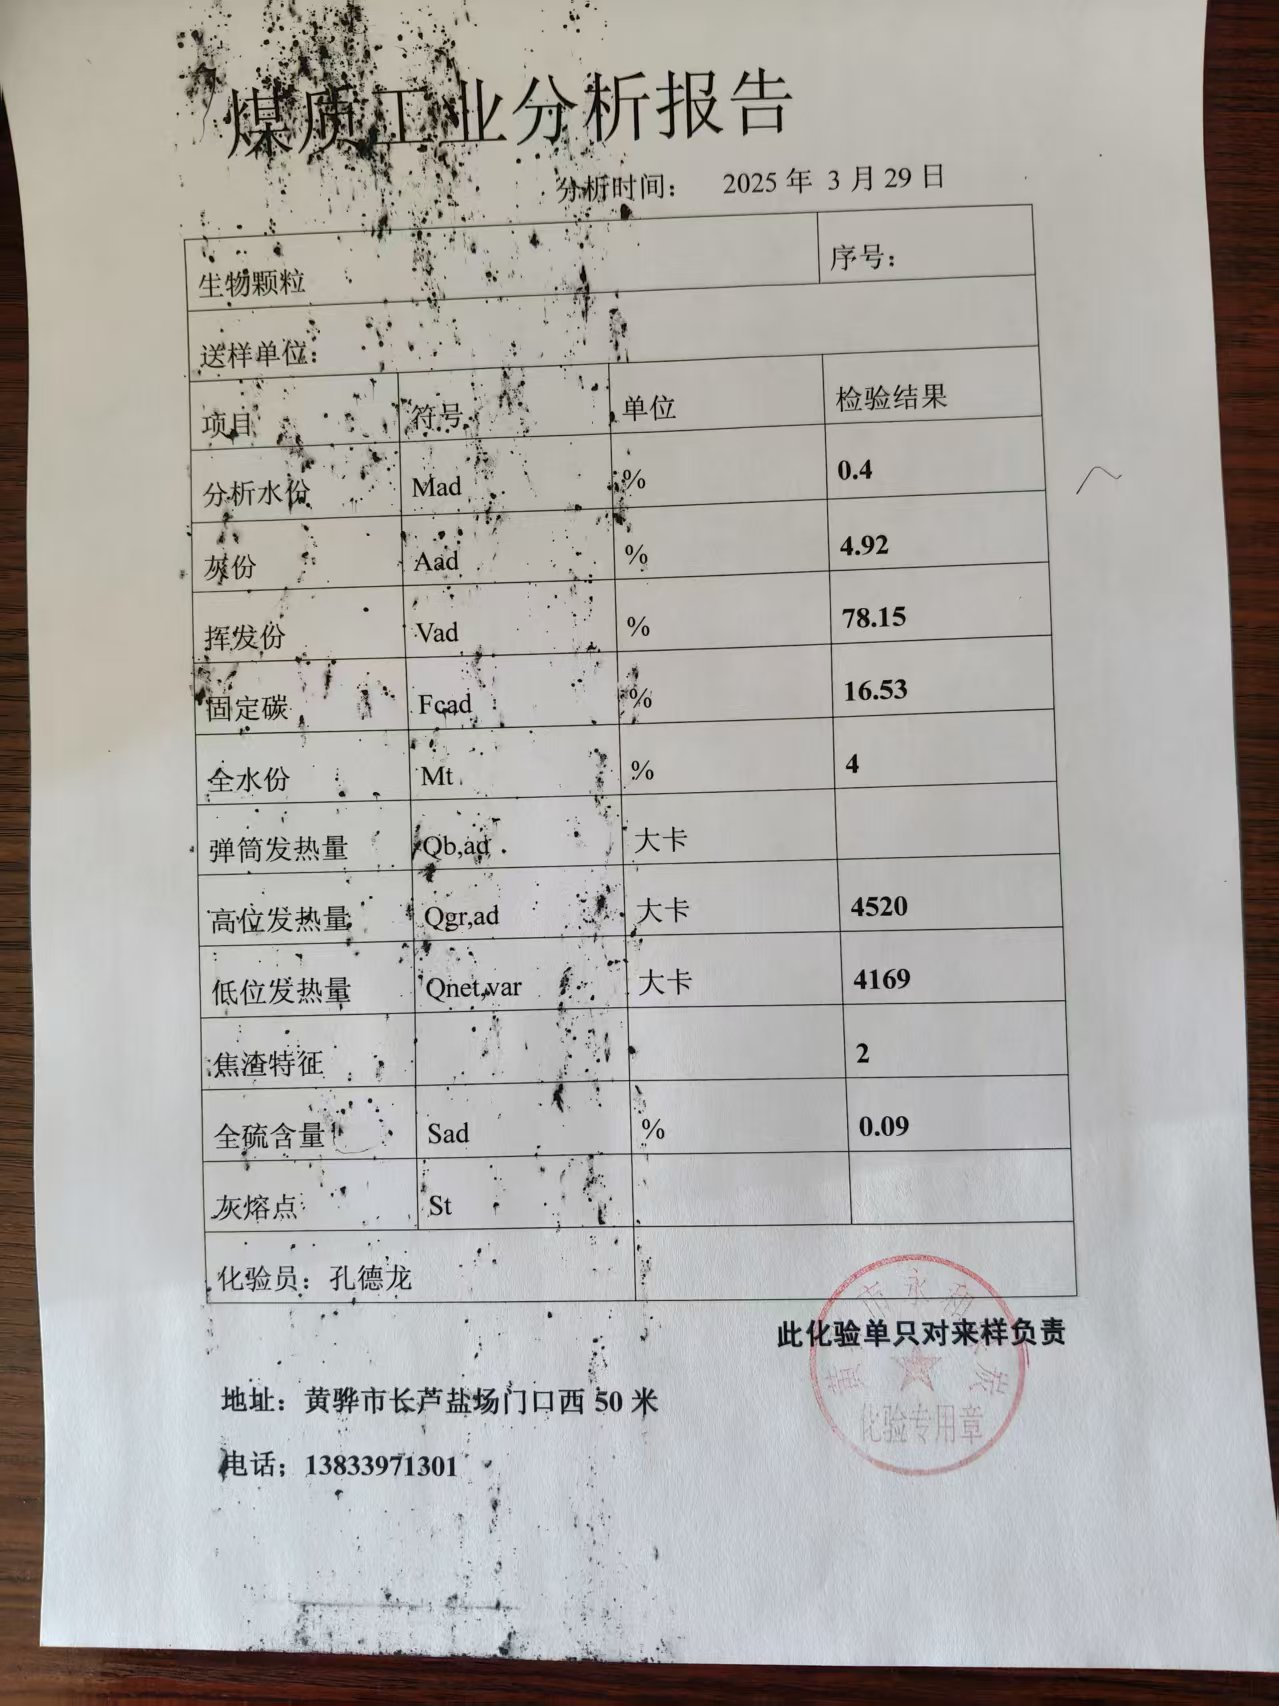 煤质工业分析报告
分析时间： 2025 年 3 月 29 日
生物颗粒 序号：
送样单位：
项目 符号 单位 检验结果
分析水份 Mad % 0.4
灰份 Aad % 4.92
挥发份 Vad % 78.15
固定碳 Fcad % 16.53
全水份 Mt % 4
弹筒发热量 Qb,ad 大卡
高位发热量 Qgr,ad 大卡 4520
低位发热量 Qnet,var 大卡 4169
焦渣特征 2
全硫含量 Sad % 0.09
灰熔点 St
化验员：孔德龙
此化验单只对来样负责
地址：黄骅市长芦盐场门口西 50 米
电话；13833971301
化验专用章